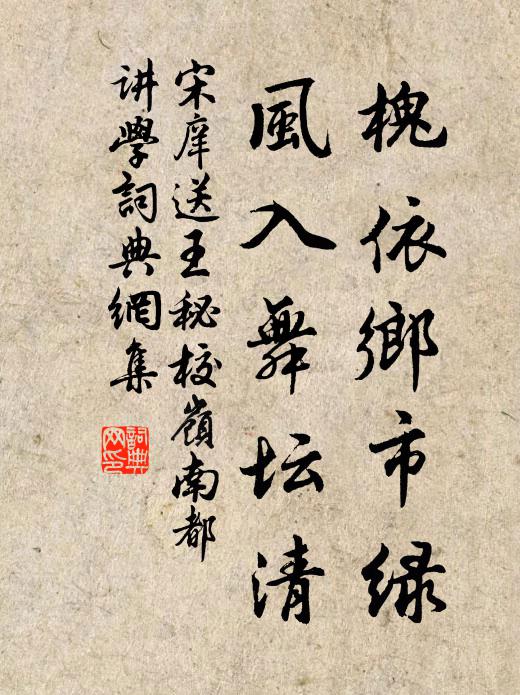 槐依鄉市緑
風入舞坛清
宋庠送王秘校嶺南都
讲學詞典網集
詞典网印